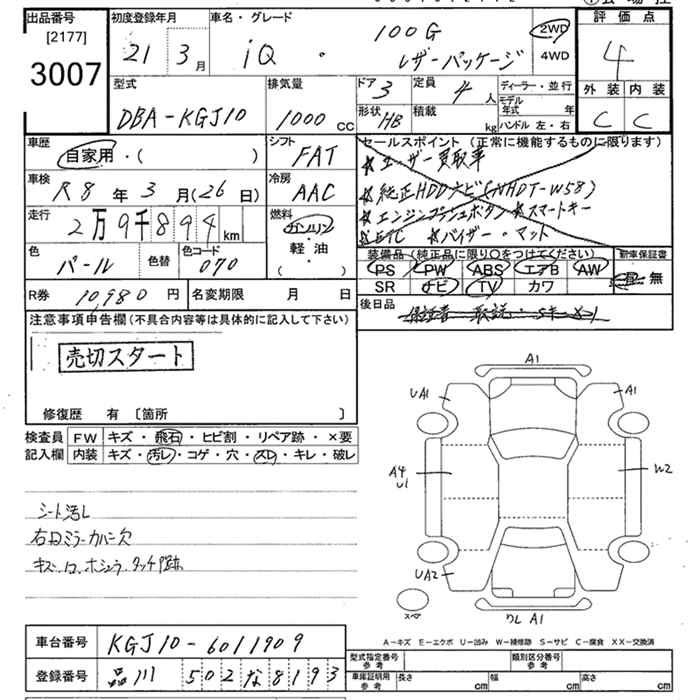 出品番号
[2177]
3007
初度登録年月
21年 3月
車名・グレード
iQ ・ 100G
レザーパッケージ
2WD
4WD
評価点
4
外装 内装
C C
型式
DBA-KGJ10
排気量
1000 CC
ドア 3
定員 4 人
ディーラー・並行
モデル年式 年
形状 HB
積載 kg
ハンドル 左・右
車歴
自家用・( )
シフト
FAT
セールスポイント (正常に機能するものに限ります)
★ユーザー買取車
★純正HDDナビ(NHDT-W58)
★エンジンプッシュボタン ★スマートキー
★ETC ★バイザー・マット
車検
R8年 3月(26日)
冷房
AAC
走行
2万9千894 km
燃料
ガソリン
軽・油
( )
色
パール
色替
色コード
070
装備品 (純正品に限り○をつけてください)
新車保証書
PS PW ABS エアB AW
有・無
SR ナビ TV カワ
R券 10,980 円
名変期限 月 日
後日品
保証書 取説・Sキー×1
注意事項申告欄 (不具合内容等は具体的に記入して下さい)
売切スタート
修復歴 有 〔箇所 〕
検査員記入欄
FW キズ・飛石・ヒビ割・リペア跡・×要
内装 キズ・汚レ・コゲ・穴・スレ・キレ・破レ
シート汚し
右Dミラーカバー欠
キズ・凹・ホシュウ・タッチ跡
A1
UA1
A1
A4
U1
W2
UA2
スペア
ワレ A1
A-キズ E-エクボ U-凹み W-補修跡 S-サビ C-腐食 XX-交換済
車台番号 KGJ10-6011909
登録番号 品川 502 な 8193
型式指定番号 参考
類別区分番号 参考
車庫証明用 参考
長さ cm
幅 cm
高さ cm